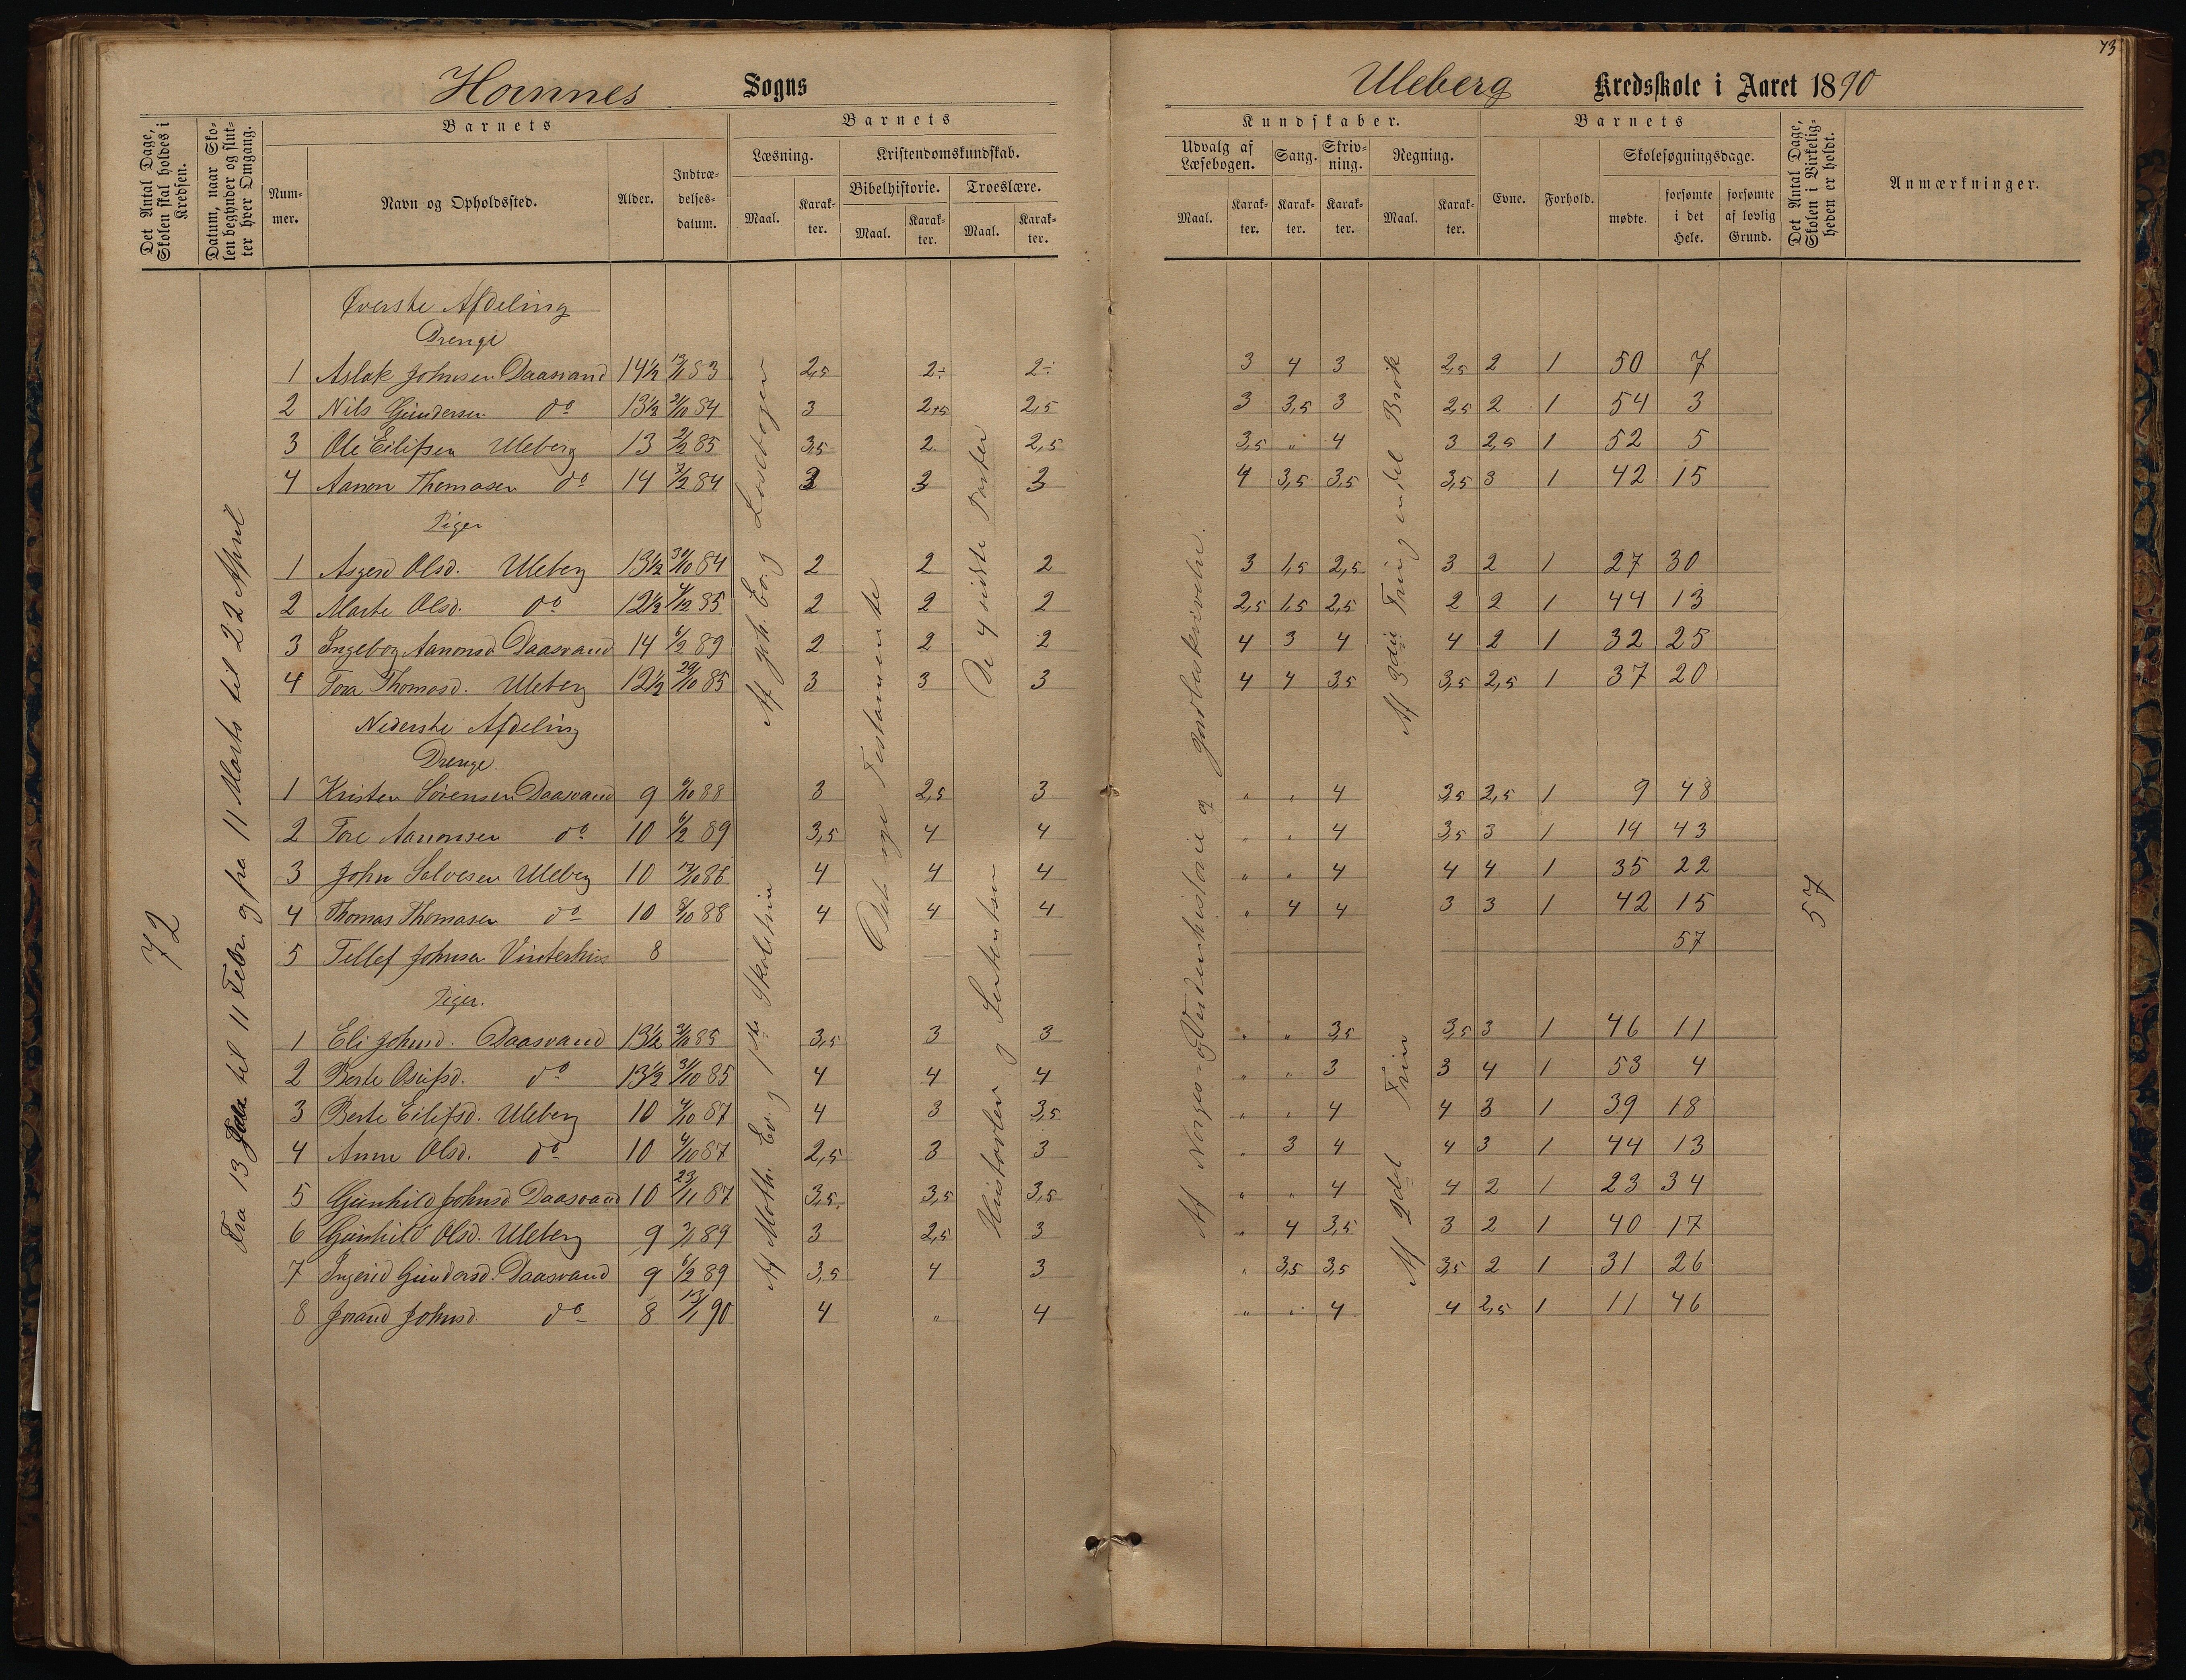 73
Hornnes Sogns
Uleberg Kredsskole i Aaret 1890
Det Antal Dage, Skolen skal holdes i Kredsen.
Datum, naar Skolen begynder og slutter hver Omgang.
Barnets
Nummer.
Navn og Opholdssted.
Alder.
Indtrædelsesdatum.
Barnets
Læsning.
Maal.
Karakter.
Kristendomskundskab.
Bibelhistorie.
Maal.
Karakter.
Troeslære.
Maal.
Karakter.
Kundskaber.
Udvalg af Læsebogen.
Maal.
Karakter.
Sang.
Karakter.
Skrivning.
Karakter.
Regning.
Maal.
Karakter.
Barnets
Evne.
Forhold.
Skolesøgningsdage.
mødte.
forsømte i det Hele.
forsømte af lovlig Grund.
Det Antal Dage, Skolen i Virkeligheden er holdt.
Anmærkninger.
72
Fra 13 til 11 Febr. og fra 11 Marts til 22 April
Af og 1ste Skoletrin
Det nye Testamente
De 4 sidste Parter
Af Norges- og Verdenshistorie og Jordbeskrivelse.
Af 3die Trin og endel Brøk
Af 2det Trin
57
Øverste Afdeling
Drenge
1 Aslak Johnsen Daasvand 14½ 83 2,5 2÷ 2÷ 3 4 3 2,5 2 1 50 7
2 Nils Gundersen do 13½ 21/10 84 3 2,5 2,5 3 3,5 3 2,5 2 1 54 3
3 Ole Eilifsen Uleberg 13 2/2 85 3,5 2 2,5 3,5 " 4 3 2,5 1 52 5
4 Aanon Thomasen do 14 84 3 3 3 4 3,5 3,5 3,5 3 1 42 15
Piger
1 Asgerd Olsd. Uleberg 13½ 30/10 84 2 2 2 3 1,5 2,5 3 2 1 27 30
2 Marte Olsd. do 12½ 85 2 2 2 2,5 1,5 2,5 2 2 1 44 13
3 Ingeborg Aanonsd Daasvand 14 6/2 89 2 2 2 4 3 4 4 2 1 32 25
4 Tora Thomasd. Uleberg 12½ 29/10 85 3 3 3 4 4 3,5 3,5 2,5 1 37 20
Nederste Afdeling
Drenge.
1 Kristen Sørensen Daasvand 9 88 3 2,5 3 " " 4 3,5 2,5 1 9 48
2 Tore Aanonsen do 10 6/2 89 3,5 4 4 " " 4 3,5 3 1 14 43
3 John Salvesen Uleberg 10 86 4 4 4 " " 4 4 4 1 35 22
4 Thomas Thomasen do 10 8/10 88 4 4 4 " 4 4 3 3 1 42 15
5 Tellef Johnsen Vinterhus 8 57
Piger.
1 Eli Johnsd. Daasvand 13½ 85 3,5 3 3 " " 3,5 3,5 3 1 46 11
2 Berte Osufsd. do 13½ 31/10 85 4 4 4 " " 3 3 4 1 53 4
3 Berte Eilifsd. Uleberg 10 4/10 87 4 3 3,5 " " 4 4 3 1 39 18
4 Anne Olsd. do 10 4/10 87 2,5 3 3 " 3 4 4 3 1 44 13
5 Gunhild Johnsd Daasvand 10 23/11 87 3,5 3,5 3,5 " " 4 4 2 1 23 34
6 Gunhild Olsd. Uleberg 9 89 3 2,5 3 " 4 3,5 3 2 1 40 17
7 Ingerid Gundersd. Daasvand 9 6/2 89 3,5 4 3 " 3,5 3,5 3,5 2 1 31 26
8 Jorand Johnsd. do 8 13/1 90 4 " 4 " " 4 4 2,5 1 11 46
Historler og Sententser